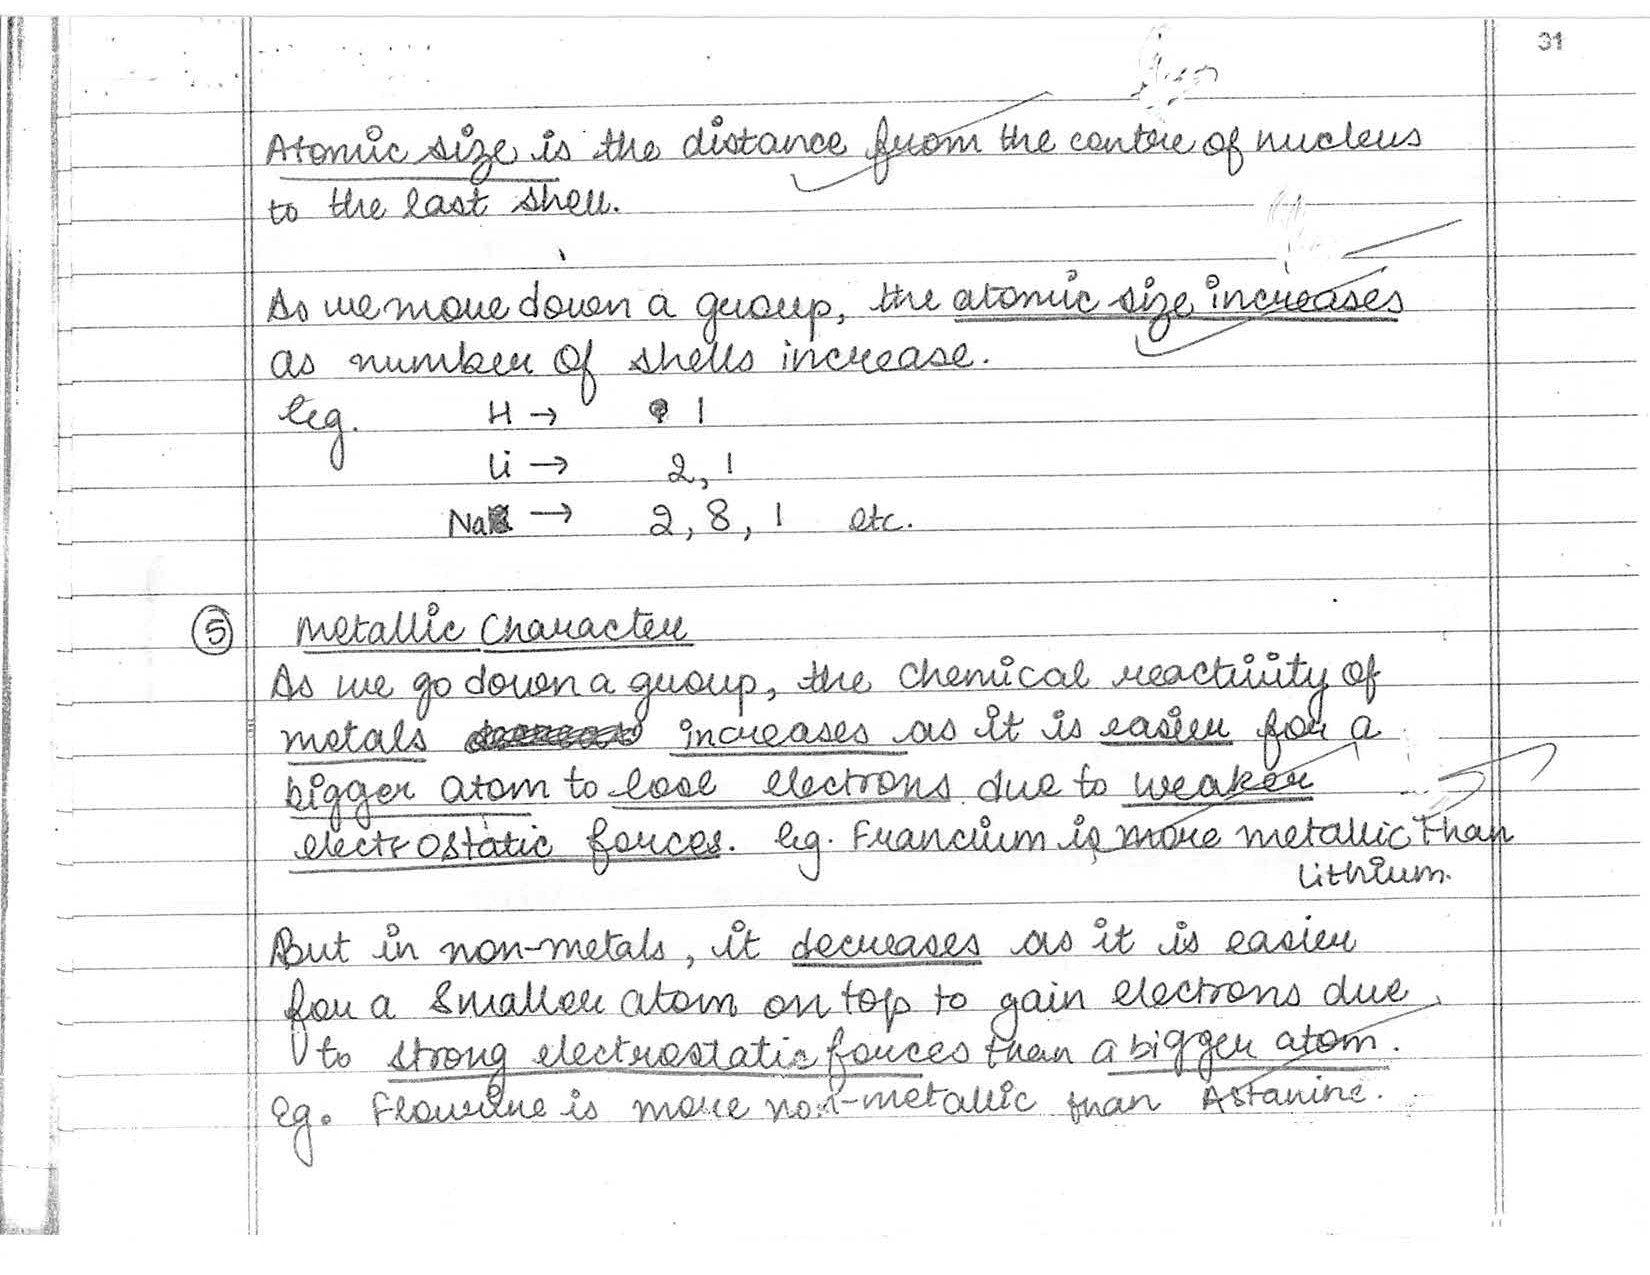 31
Atomic size is the distance from the centre of nucleus
to the last shell.
As we move down a group, the atomic size increases
as number of shells increase.
Eg. H → 1
Li → 2, 1
Na → 2, 8, 1 etc.
5 Metallic Character
As we go down a group, the chemical reactivity of
metals increases as it is easier for a
bigger atom to lose electrons due to weaker
electrostatic forces. Eg. Francium is more metallic than
Lithium.
But in non-metals, it decreases as it is easier
for a smaller atom on top to gain electrons due
to strong electrostatic forces than a bigger atom.
Eg. Flourine is more non-metallic than Astanine.